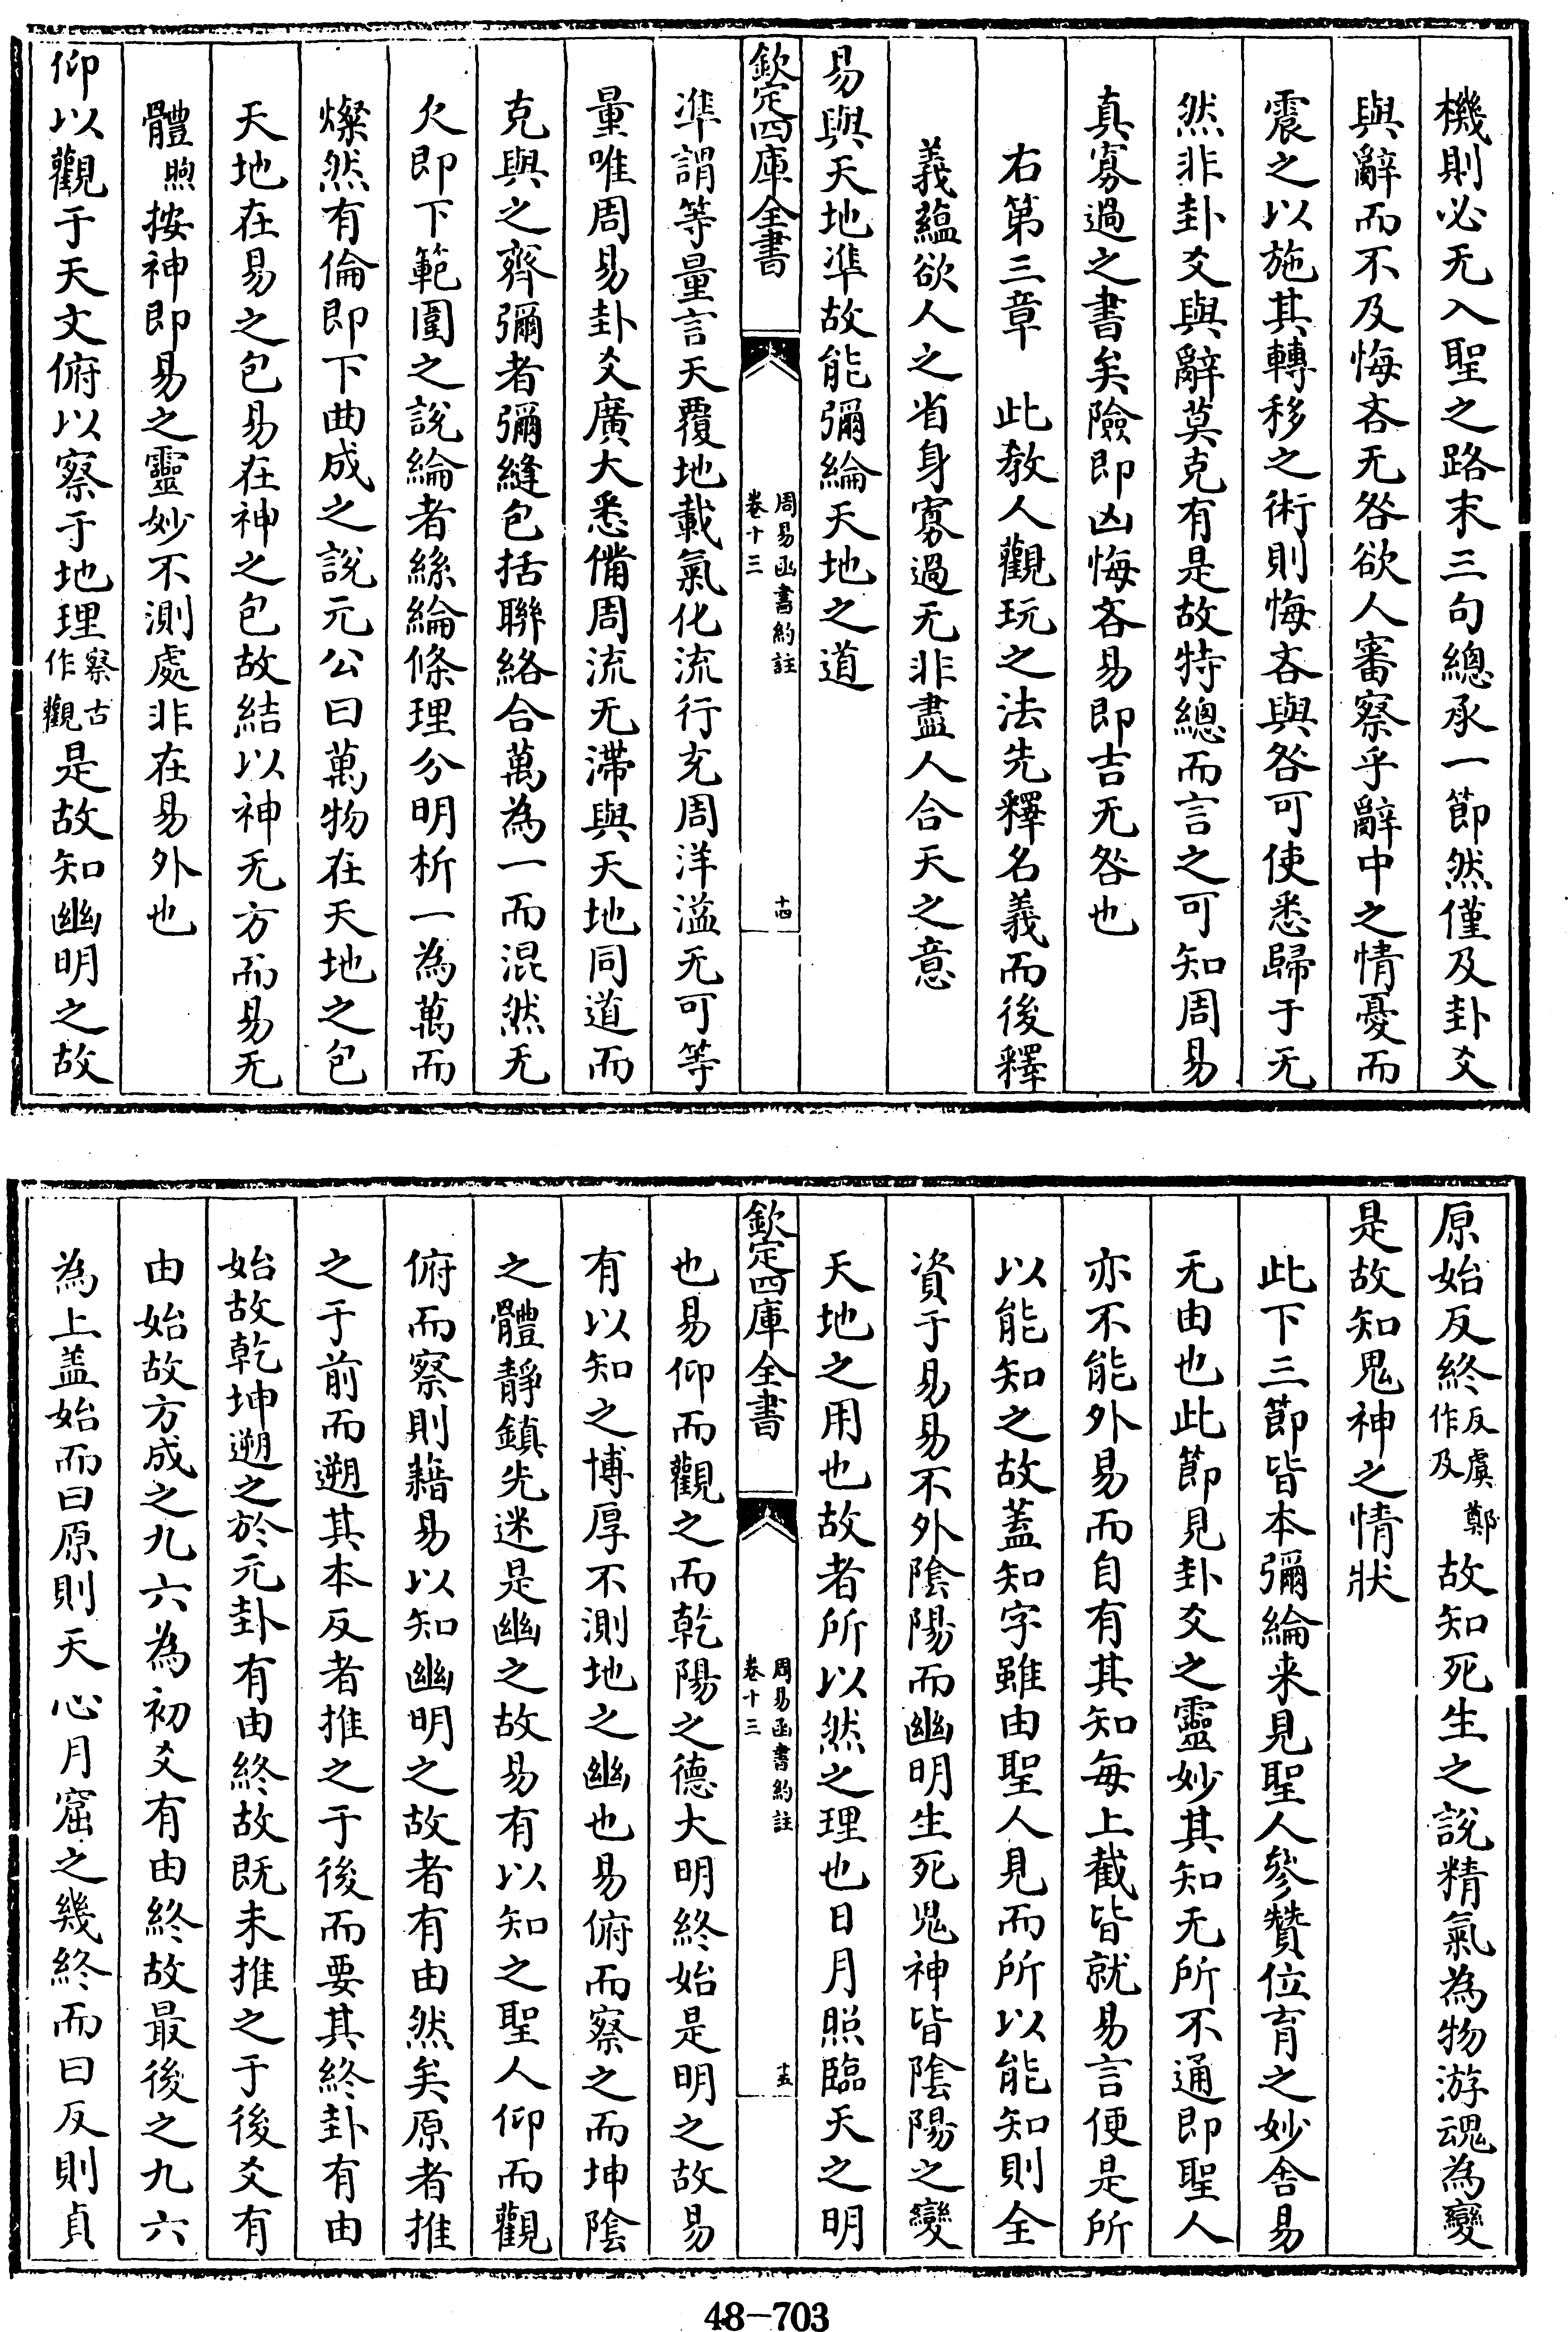 機則必无入聖之路末三句總承一節然僅及卦爻
與辭而不及悔吝无咎欲人審察乎辭中之情憂而
震之以施其轉移之術則悔吝與咎可使悉歸于无
然非卦爻與辭莫克有是故特總而言之可知周易
真寡過之書矣險即凶悔吝易即吉无咎也
右第三章　此教人觀玩之法先釋名義而後釋
義蘊欲人之省身寡過无非盡人合天之意
易與天地準故能彌綸天地之道
欽定四庫全書
周易函書約註
卷十三
十四
準謂等量言天覆地載氣化流行充周洋溢无可等
量唯周易卦爻廣大悉備周流无滯與天地同道而
克與之齊彌者彌縫包括聯絡合萬為一而混然无
欠即下範圍之說綸者絲綸條理分明析一為萬而
燦然有倫即下曲成之說元公曰萬物在天地之包
天地在易之包易在神之包故結以神无方而易无
體煦按神即易之靈妙不測處非在易外也
仰以觀于天文俯以察于地理察古作觀是故知幽明之故
原始反終反虞鄭作及故知死生之說精氣為物游魂為變
是故知鬼神之情狀
此下三節皆本彌綸来見聖人參贊位育之妙舍易
无由也此節見卦爻之靈妙其知无所不通即聖人
亦不能外易而自有其知毎上截皆就易言便是所
以能知之故蓋知字雖由聖人見而所以能知則全
資于易易不外陰陽而幽明生死鬼神皆陰陽之變
天地之用也故者所以然之理也日月照臨天之明
欽定四庫全書
周易函書約註
卷十三
十五
也易仰而觀之而乾陽之德大明終始是明之故易
有以知之博厚不測地之幽也易俯而察之而坤陰
之體靜鎮先迷是幽之故易有以知之聖人仰而觀
俯而察則藉易以知幽明之故者有由然矣原者推
之于前而遡其本反者推之于後而要其終卦有由
始故乾坤遡之於元卦有由終故既未推之于後爻有
由始故方成之九六為初爻有由終故最後之九六
為上盖始而曰原則天心月窟之幾終而曰反則貞
48-703